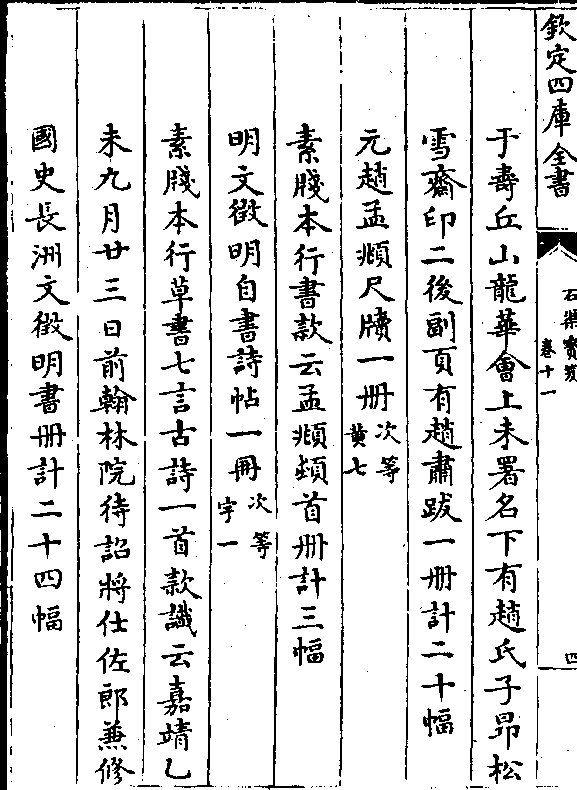 欽定四庫全書
石渠寳笈
卷十一
四
于壽丘山龍華會上未署名下有趙氏子昻松
雪齋印二後副頁有趙肅跋一册計二十幅
元趙孟頫尺牘一册次等黄七
素牋本行書款云孟頫頫首册計三幅
明文徴明自書詩帖一冊次等字一
素牋本行草書七言古詩一首款識云嘉靖乙
未九月廿三日前翰林院待詔將仕佐郎兼修
國史長洲文徴明書册計二十四幅